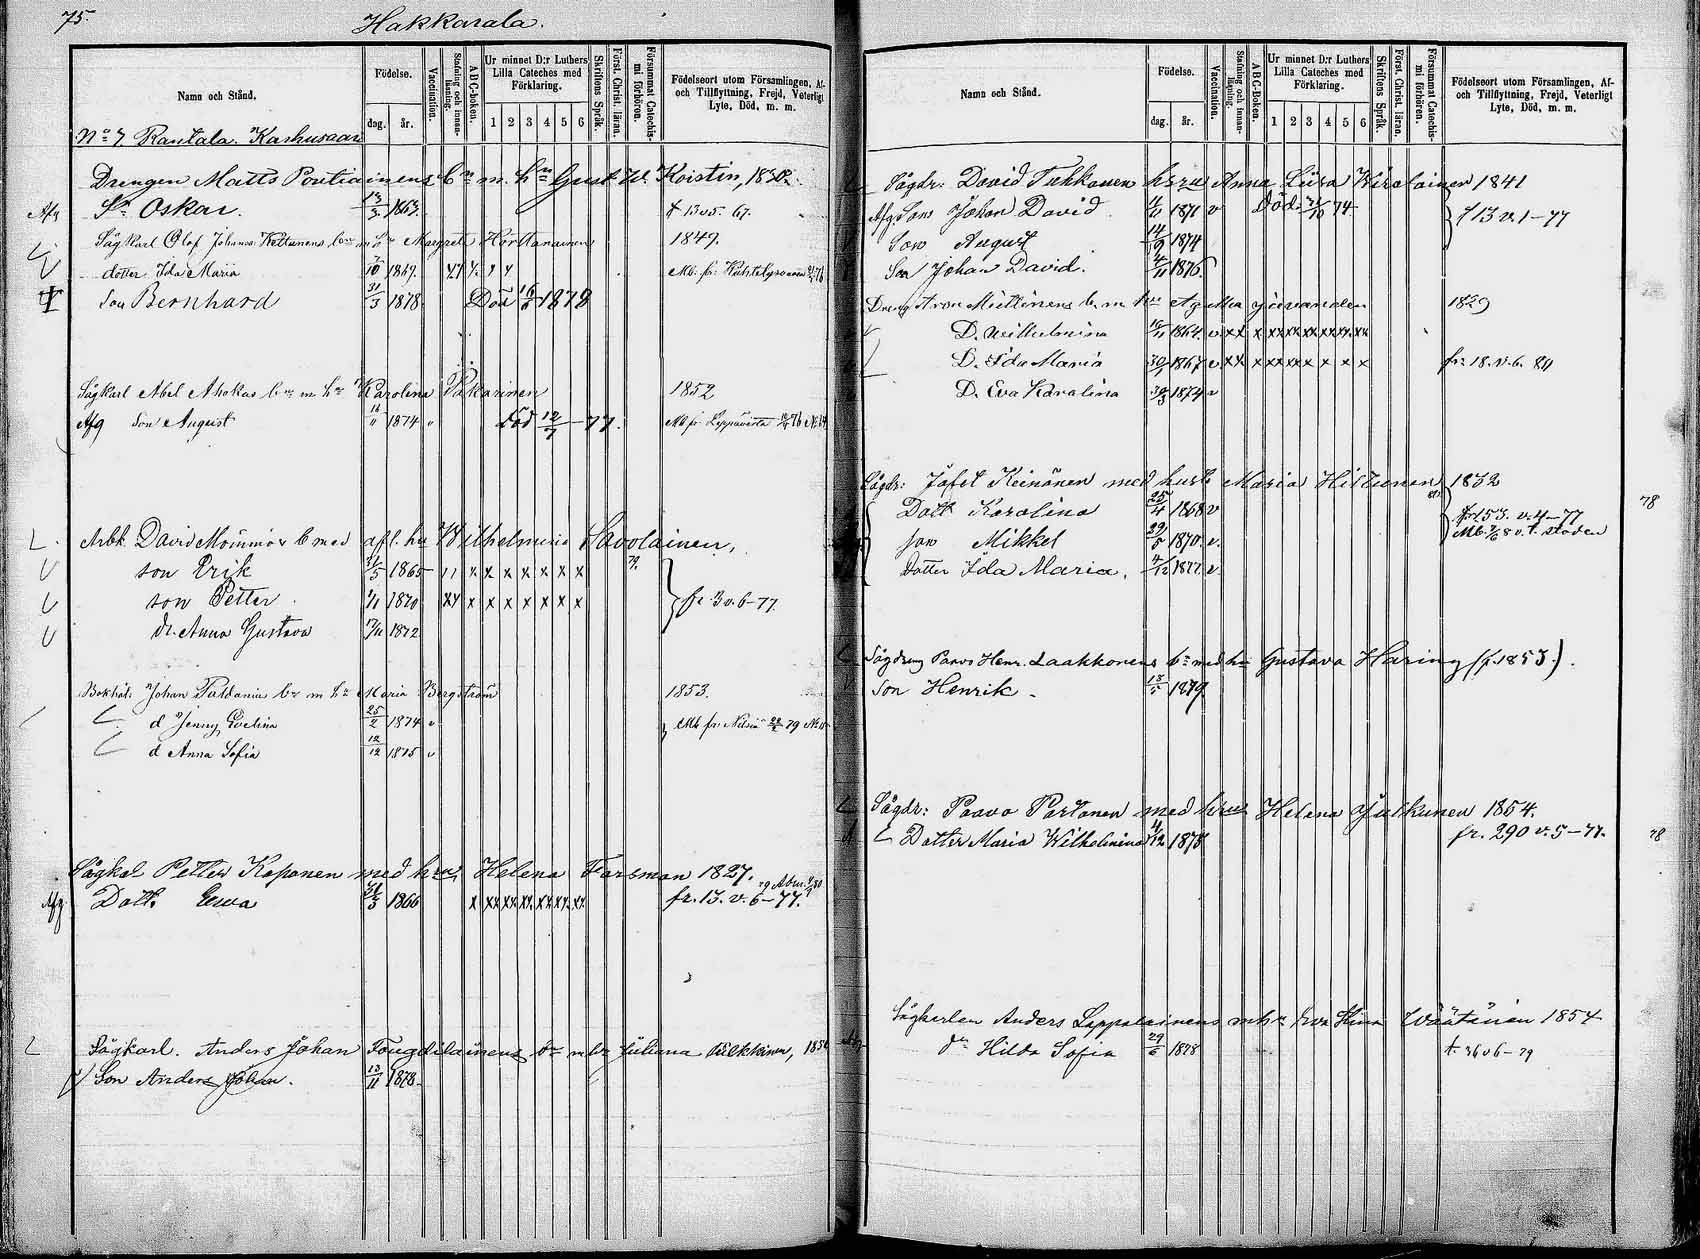 75.
Hakkarala.
Namn och Stånd.
Födelse.
dag.
år.
Vaccination.
Stafning och innanläsning.
A B C-boken.
Ur minnet D:r Luthers Lilla Cateches med Förklaring.
1 2 3 4 5 6
Skriftens Språk.
Först. Christ. läran.
Försummat Catechismi förhören.
Födelseort utom Församlingen, Af- och Tillflyttning, Frejd, Veterligt Lyte, Död, m. m.
No 7 Rantala Karhusaari
Drengen Matts Pontiainens bn m. hu Gust. W. Koistin, 1830.
Afg Sn Oskar. 13/3 1863. f 13 v 5. 67.
Sågkarl Olof Johanss. Kettunens bn m hu Margreta Hörttanainen 1849.
dotter Ida Maria 7/10 1869.
Son Bernhard 31/3 1878 Död 16/6 1878
Sågkarl Abel Ahokas bn m hu Karolina Pakarinen 1852
Afg Son August 16/11 1874 Död 12/7 - 77. Mb fr Leppävirta
Arbk. David Mömmös b med afl. hu Wilhelmina Savolainen,
son Erik 31/5 1865 x x x x x x x
son Petter 1/11 1870 xx x x x x x x x } fr 3 v. 6-77.
dr. Anna Gustava 17/11 1872
Bokhål. Johan Paldanius bn m hu Maria Bergström 1853.
d Jenny Evelina 25/2 1874 Mb fr. Nilsiä 22/2 79
d Anna Sofia 12/12 1875
Sågkal Petter Koponen med hru Helena Forsman 1827.
Afg Dott. Ewa 31/3 1866 x xx xx xx xx xx xx fr. 13. v. 6-77.
Sågkarl. Anders Johan Fougdilainens bn m hu Juliana Pulkkinen,
Son Anders Johan. 13/11 1878.
Namn och Stånd.
Födelse.
dag.
år.
Vaccination.
Stafning och innanläsning.
A B C-Boken.
Ur minnet D:r Luthers Lilla Cateches med Förklaring.
1 2 3 4 5 6
Skriftens Språk.
Först. Christ. läran.
Försummat Catechismi förhören.
Födelseort utom Församlingen, Af- och Tillflyttning, Frejd, Veterligt Lyte, Död, m. m.
Sågdr: David Tukkonen hsru Anna Lüsa Wirolainen 1841
Afg. Son Johan David 4/11 1871 v Död 74 } f 13 v. 1-77
Son August 14/9 1874
Son Johan David. 4/11 1876.
Dreng Aron Miettinens b. m hu Agatha Göövanden 1829
D. Wilhelmina 16/11 1864. v xx x xx xx xx xx xx xx
D. Ida Maria 30/1 1867 v xx x xx xx x x x x fr: 18. v. 6. 80
D. Eva Karolina 30/3 1874 v
Sågdr: Jafet Keinänen med hust Maria Hiltunen 1832
Dott Karolina 25/4 1868 v } fr 153. v. 4-77
son Mikkel 29/5 1870. v. 78
Dotter Ida Maria. 4/12 1877. v
Sågdreng Paavo Henr. Laakkonens bn med hu Gustava Haring (f. 1853.).
Son Henrik 18/5 1879
Sågdr: Paavo Partanen med hru Helena Julkunen 1854.
Dotter Maria Wilhelmina 4/12 1875 fr. 290 v. 5-77. 78
Sågkarlen Anders Lappalainens m hu Eva Stina Wäätäinen 1854
dr Hilda Sofia 29/6 1878 f. 36 v 6-79